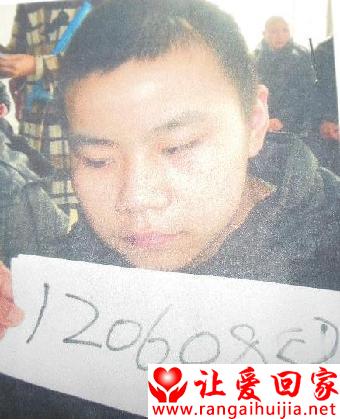 120608
让爱回家
www.rangaihuijia.net